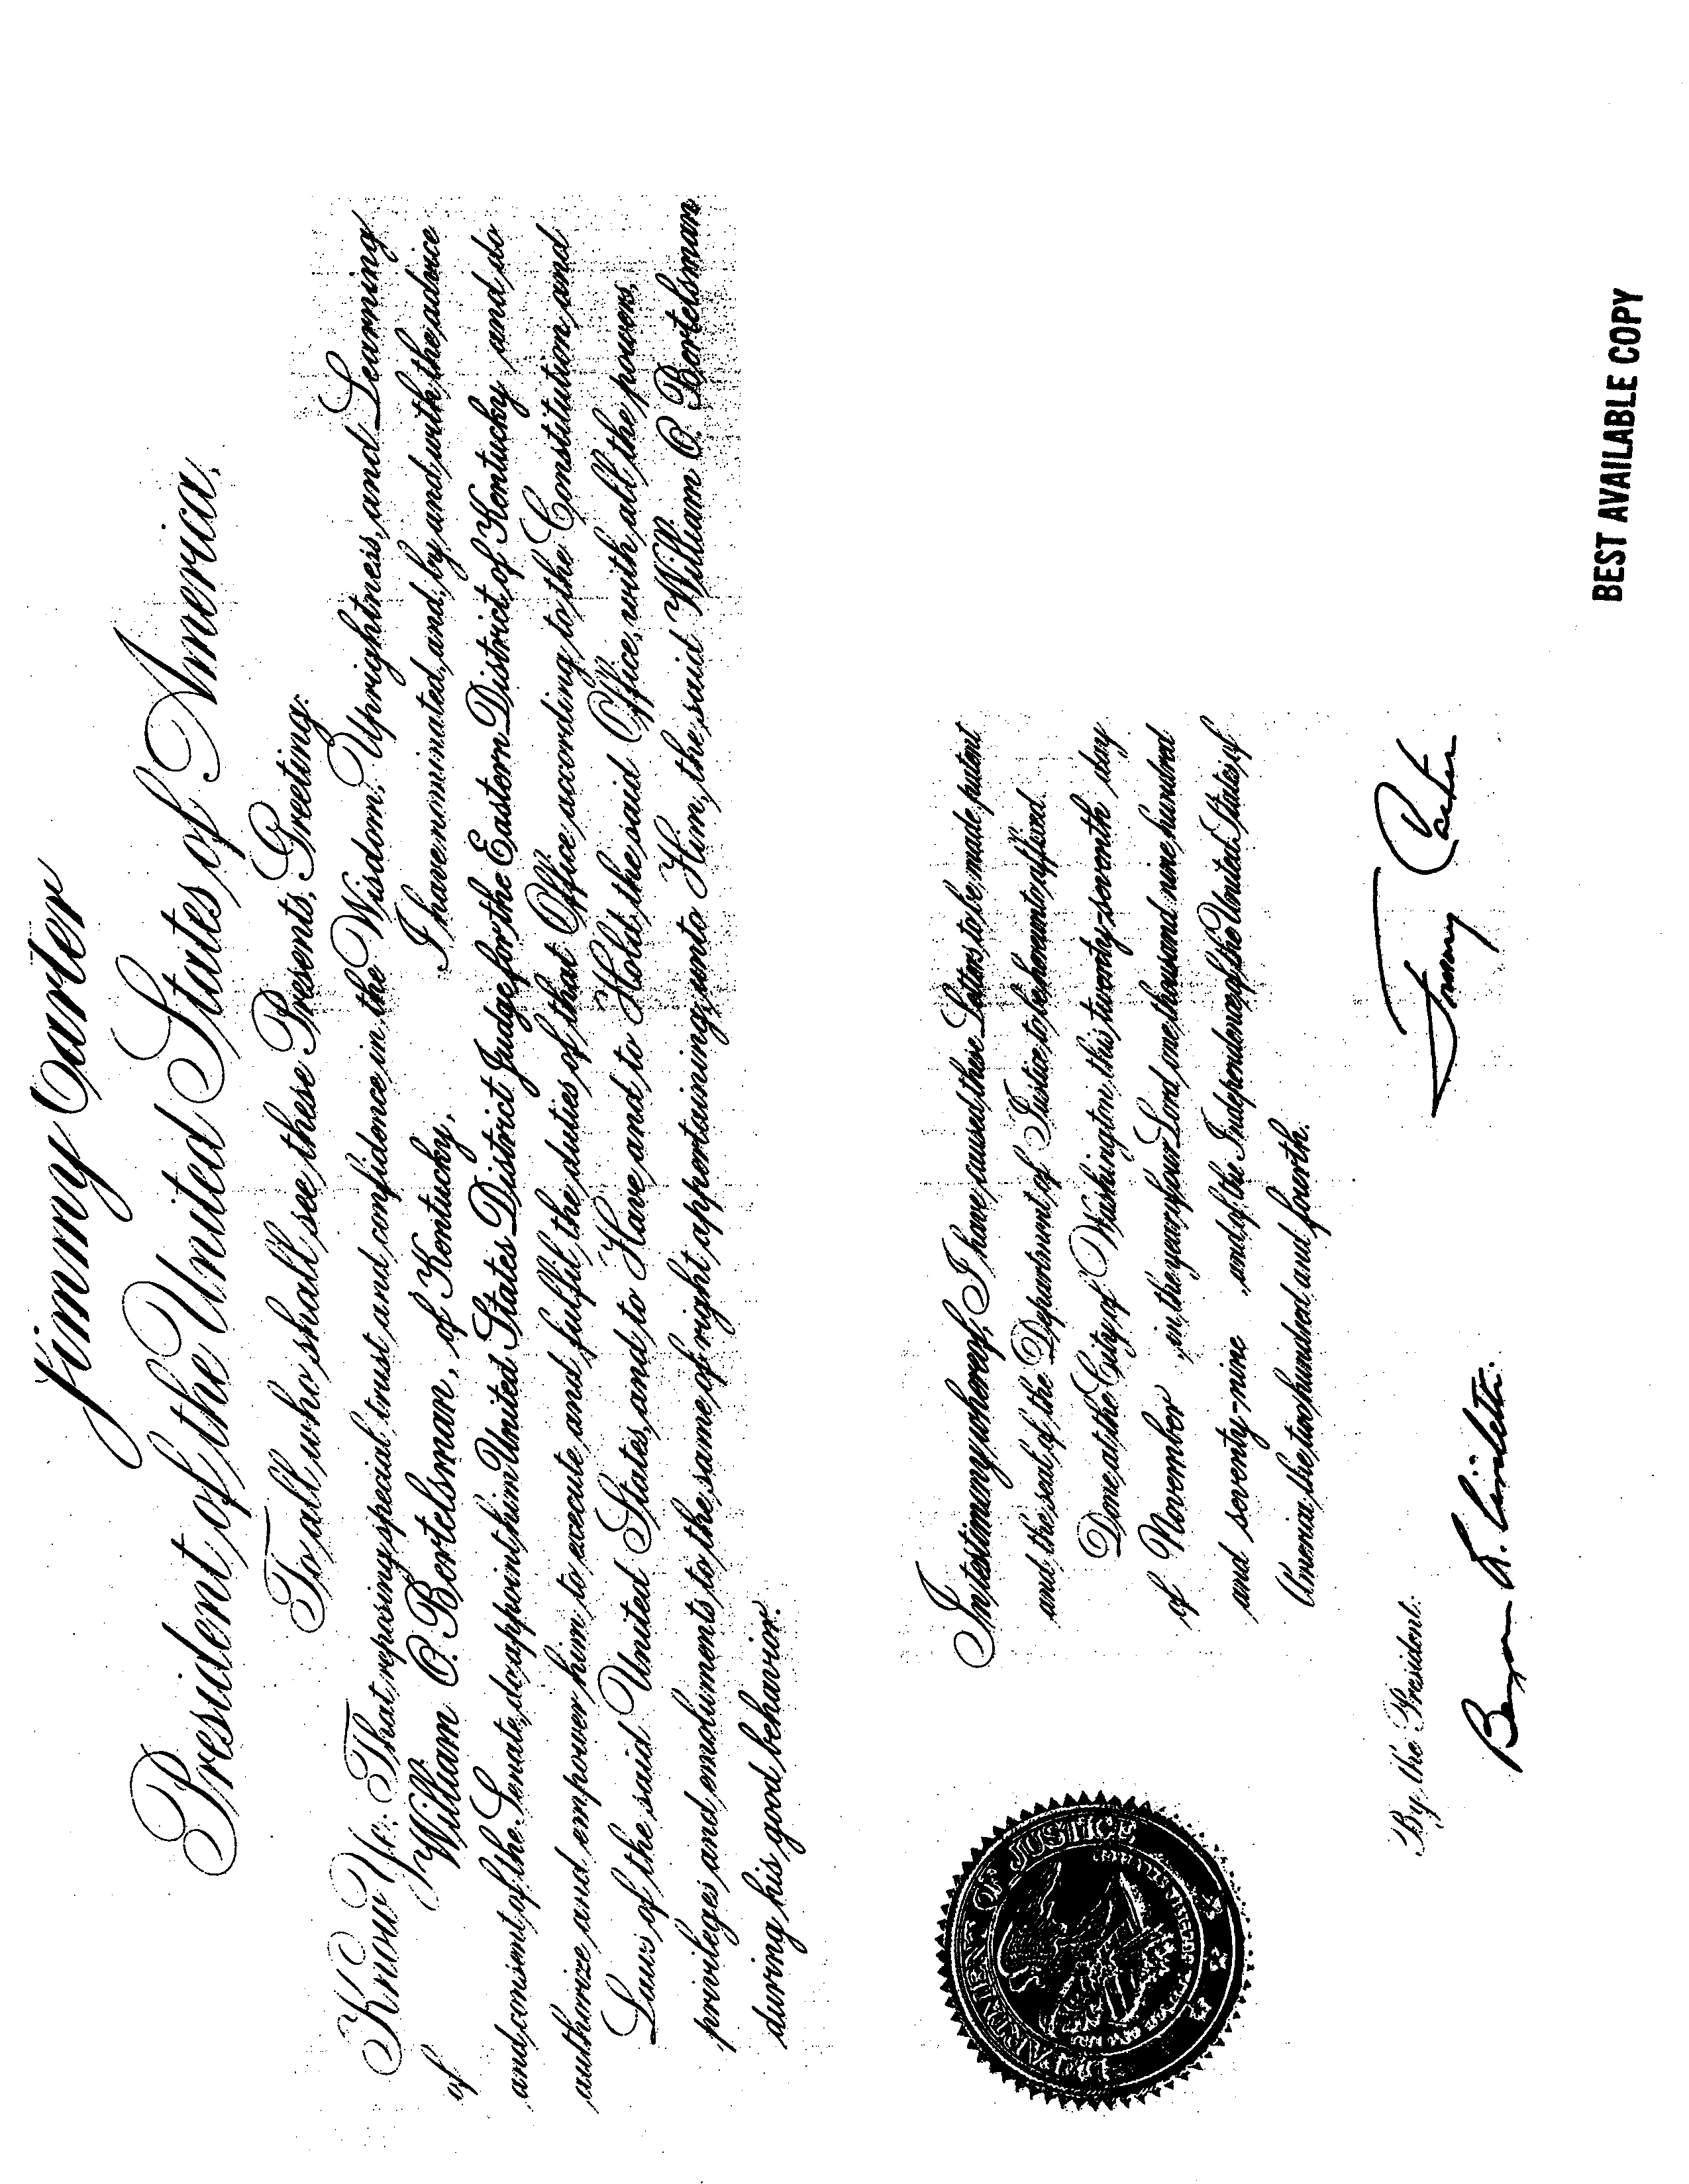 Jimmy Carter
President of the United States of America,
To all who shall see these Presents, Greeting:
Know Ye: That reposing special trust and confidence in the Wisdom, Uprightness, and Learning
of William O. Bertelsman, of Kentucky, I have nominated, and, by and with the advice
and consent of the Senate, do appoint him United States District Judge for the Eastern District of Kentucky and do
authorize and empower him to execute and fulfil the duties of that Office according to the Constitution and
Laws of the said United States, and to Have and to Hold the said Office, with all the powers,
privileges and emoluments to the same of right appertaining, unto Him, the said William O. Bertelsman
during his good behavior.
In testimony whereof, I have caused these Letters to be made patent
and the seal of the Department of Justice to be hereunto affixed.
Done at the City of Washington this twenty-seventh day
of November, in the year of our Lord one thousand nine hundred
and seventy-nine, and of the Independence of the United States of
America the two hundred and fourth.
DEPARTMENT OF JUSTICE
Jimmy Carter
By the President:
Benjamin R. Civiletti
BEST AVAILABLE COPY